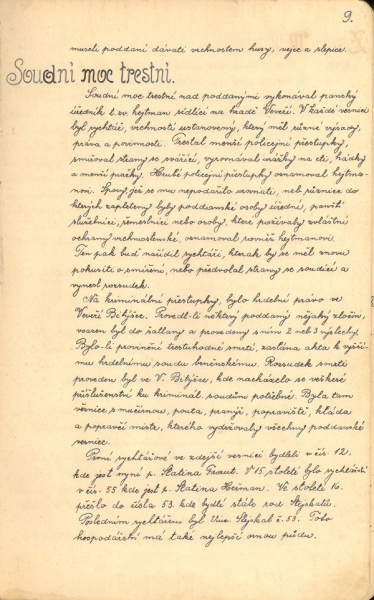 9.
museli poddaní dávati vrchnostem husy, vejce a slepice.
Soudní moc trestní.
Soudní moc trestní nad poddanými vykonával panský
úředník t. zv. hejtman sídlící na hradě Veveří. V každé vesnici
byl rychtář, vrchností ustanovený, který měl různé výsady,
práva a povinnosti. Trestal menší policejní přestupky,
smiřoval strany se svářící, vyrovnával urážky na cti, hádky
a menší pračky. Hrubé policejní přestupky oznamoval hejtma-
novi. Spory, jež se mu nepodařilo srovnati, neb různice do
kterých zapleteny byly poddanské osoby úřední, panští
služebníci, řemeslníci nebo osoby, které požívaly zvláštní
ochrany vrchnostenské, oznamoval rovněž hejtmanovi.
Ten pak buď nařídil rychtáři, kterak by se měl znovu
pokusiti o smíření, nebo předvolal strany se soudící a
vynesl rozsudek.
Na kriminální přestupky, bylo hrdelní právo ve
Veverské Bítýšce. Provedl-li některý poddaný nějaký zločin,
vsazen byl do šatlavy a provedeny s ním 2 neb 3 výslechy.
Bylo-li provinění trestuhodné smrtí, zaslána akta k vyšší-
mu hrdelnímu soudu brněnskému. Rozsudek smrti
proveden byl ve V. Bítýšce, kde nacházelo se veškeré
příslušenství ku kriminál. soudům potřebné. Byla tam
věznice s mučírnou, pouta, pranýř, popraviště, kláda
a popravčí místo, kterého vydržovaly všechny poddanské
vesnice.
První rychtářové ve zdejší vesnici bydleli v čís. 12.
kde jest nyní p. Slatina Fraut. V 15. století bylo rychtářství
v čís. 55 kde jest p. Slatina Heřman. Ve století 16.
přešlo do čísla 53. kde bydlí stále rod Stejskalů.
Posledním rychtářem byl Vinc. Stejskal č. 53. Toto
hospodářství má také nejlepší ornou půdu.